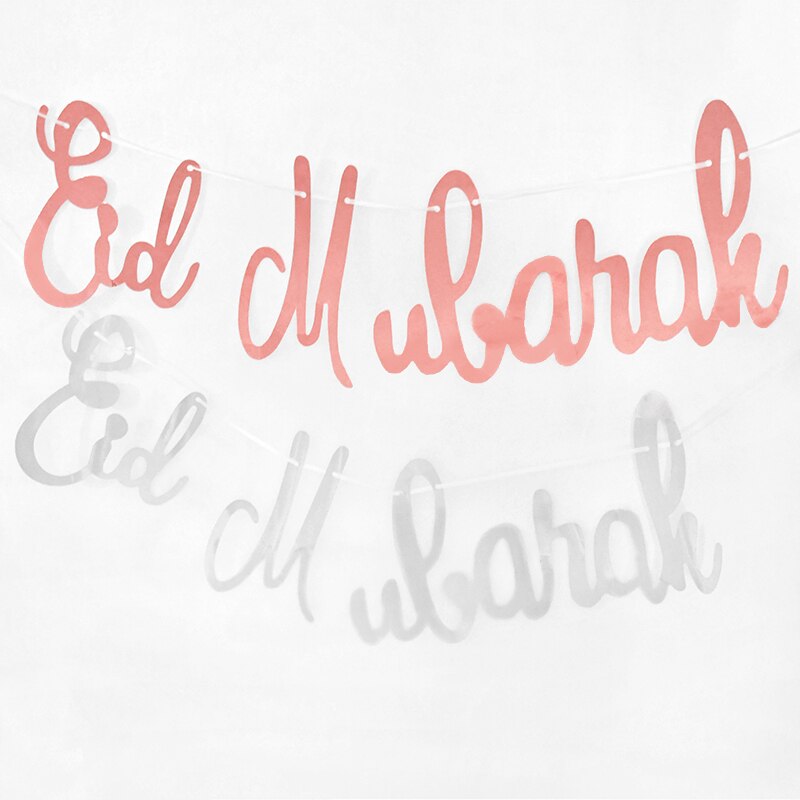 Eid Mubarak
Eid Mubarak